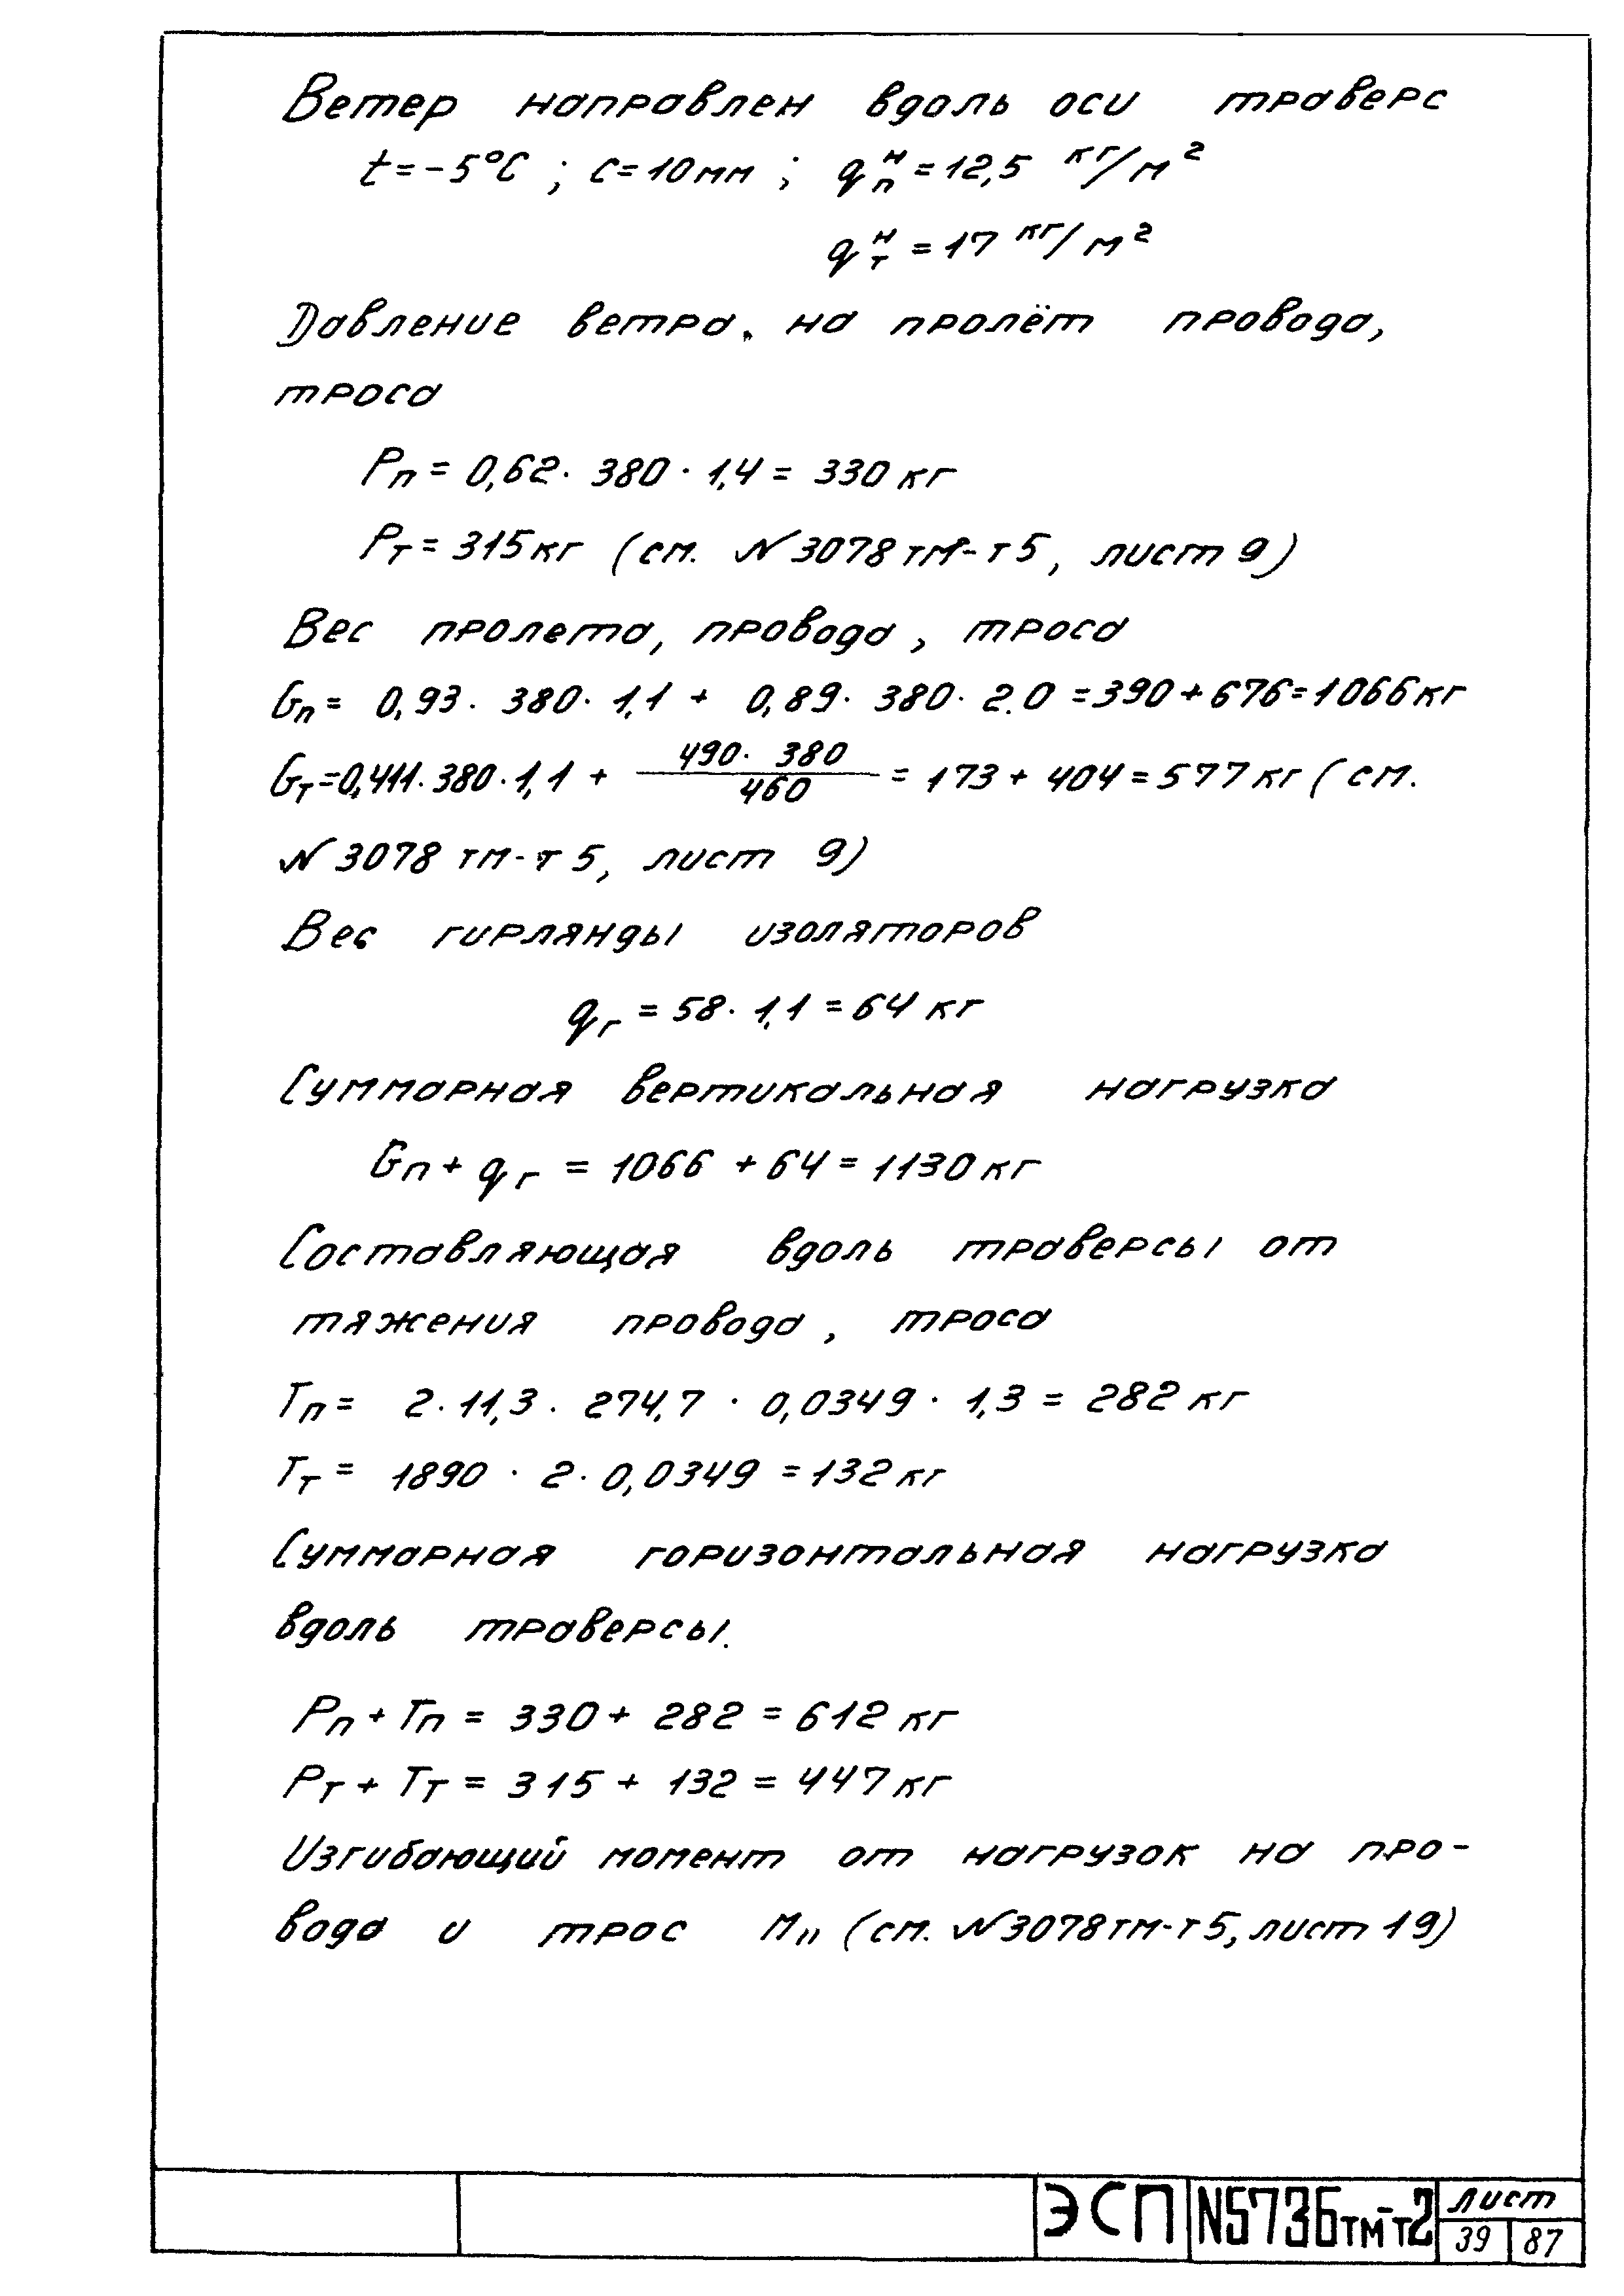 Ветер направлен вдоль оси траверс
t = -5°C ; C = 10мм ; qпн = 12,5 кг/м²
qтн = 17 кг/м²
Давление ветра, на пролёт провода,
троса
Pп = 0,62 · 380 · 1,4 = 330 кг
Pт = 315 кг (см. N 3078тм-т5, лист 9)
Вес пролета, провода, троса
Gп = 0,93 · 380 · 1,1 + 0,89 · 380 · 2.0 = 390 + 676 = 1066 кг
Gт = 0,411 · 380 · 1,1 + 490 · 380 / 460 = 173 + 404 = 577 кг (см.
N 3078 тм-т5, лист 9)
Вес гирлянды изоляторов
qг = 58 · 1,1 = 64 кг
Суммарная вертикальная нагрузка
Gп + qг = 1066 + 64 = 1130 кг
Составляющая вдоль траверсы от
тяжения провода, троса
Tп = 2 · 11,3 · 274,7 · 0,0349 · 1,3 = 282 кг
Tт = 1890 · 2 · 0,0349 = 132 кг
Суммарная горизонтальная нагрузка
вдоль траверсы.
Pп + Tп = 330 + 282 = 612 кг
Pт + Tт = 315 + 132 = 447 кг
Изгибающий момент от нагрузок на про-
вода и трос M" (см. N 3078тм-т5, лист 19)
ЭСП N5736тм-т2 лист
39 87